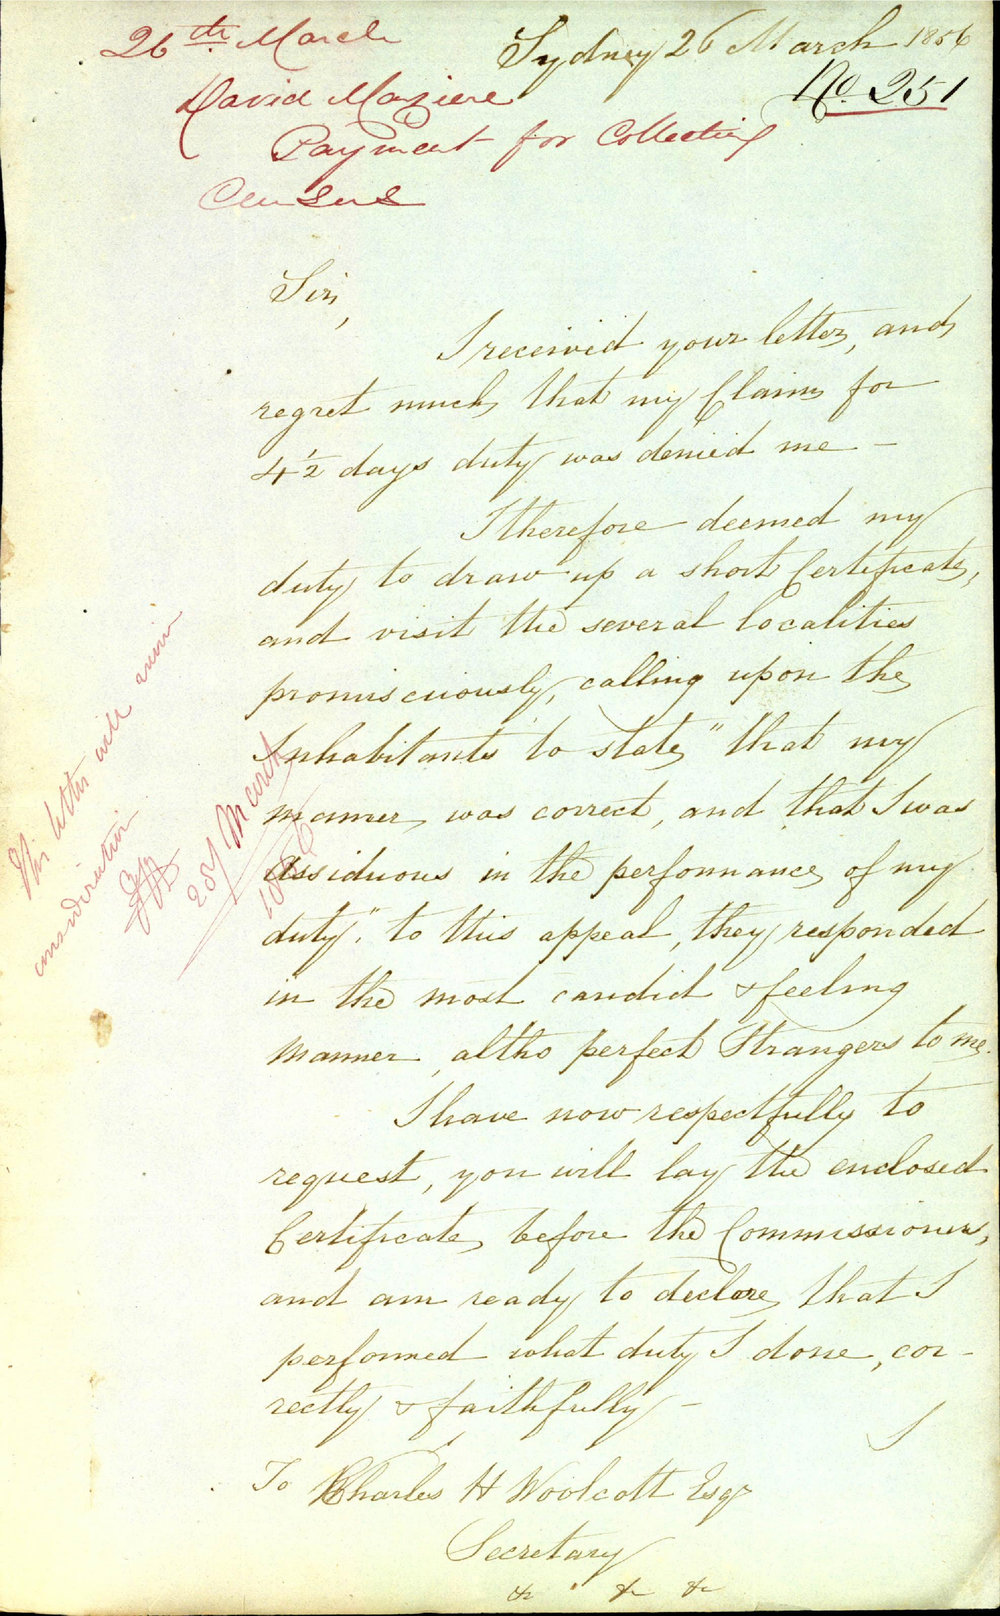 26th March
David Maziere
Payment for Collecting
Census
Sydney 26 March 1856
No. 251
Sir,
I received your letter, and
regret much that my Claim for
4½ days duty was denied me -
I therefore deemed my
duty to draw up a short Certificate,
and visit the several localities
promiscuously, calling upon the
Inhabitants to state "that my
manner was correct, and that I was
Assiduous in the performance of my
duty". to this appeal, they responded
in the most candid & feeling
manner, altho perfect Strangers to me.
I have now respectfully to
request, you will lay the enclosed
Certificate before the Commissioners,
and am ready to declare that I
performed what duty I done, cor-
rectly & faithfully -
I
To Charles H Woolcott Esqr
Secretary
&c &c &c
This letter will
consideration
28th March
1856